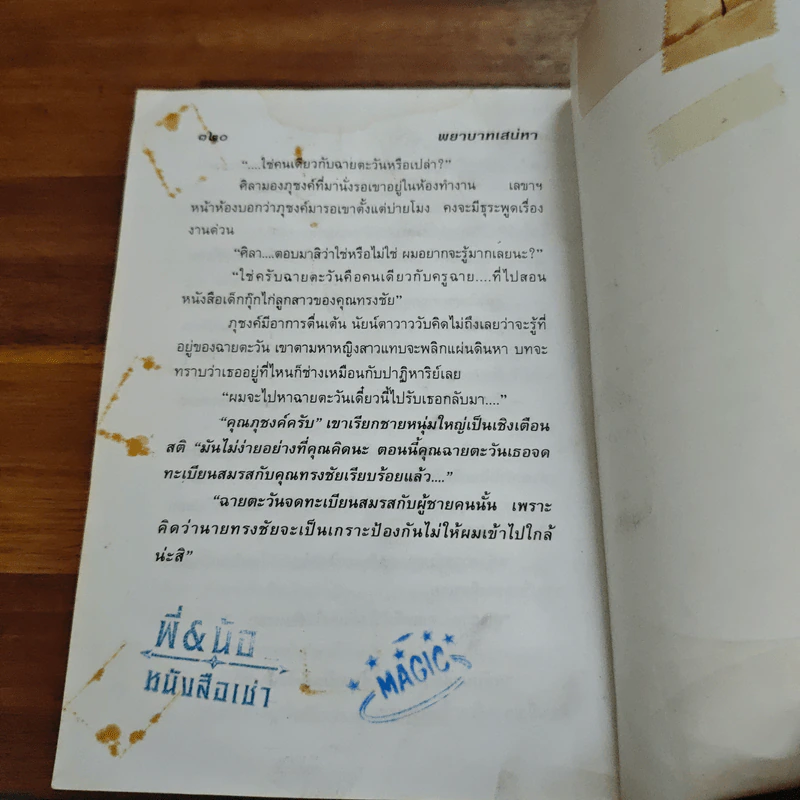 ๓๒๐ พยาบาทเสน่หา
“....ใช่คนเดียวกับฉายตะวันหรือเปล่า?”
ศิลามองภุชงค์ที่มานั่งรอเขาอยู่ในห้องทำงาน เลขาฯ
หน้าห้องบอกว่าภุชงค์มารอเขาตั้งแต่บ่ายโมง คงจะมีธุระพูดเรื่อง
งานด่วน
“ศิลา....ตอบมาสิว่าใช่หรือไม่ใช่ ผมอยากจะรู้มากเลยนะ?”
“ใช่ครับฉายตะวันคือคนเดียวกับครูฉาย....ที่ไปสอน
หนังสือเด็กกุ๊กไก่ลูกสาวของคุณทรงชัย”
ภุชงค์มีอาการตื่นเต้น นัยน์ตาวาววับคิดไม่ถึงเลยว่าจะรู้ที่
อยู่ของฉายตะวัน เขาตามหาหญิงสาวแทบจะพลิกแผ่นดินหา บทจะ
ทราบว่าเธออยู่ที่ไหนก็ช่างเหมือนกับปาฏิหาริย์เลย
“ผมจะไปหาฉายตะวันเดี๋ยวนี้ไปรับเธอกลับมา....”
“คุณภุชงค์ครับ” เขาเรียกชายหนุ่มใหญ่เป็นเชิงเตือน
สติ “มันไม่ง่ายอย่างที่คุณคิดนะ ตอนนี้คุณฉายตะวันเธอจด
ทะเบียนสมรสกับคุณทรงชัยเรียบร้อยแล้ว....”
“ฉายตะวันจดทะเบียนสมรสกับผู้ชายคนนั้น เพราะ
คิดว่านายทรงชัยจะเป็นเกราะป้องกันไม่ให้ผมเข้าไปใกล้
น่ะสิ”
พี่&น้อ
หนังสือเช่า
MAGIC